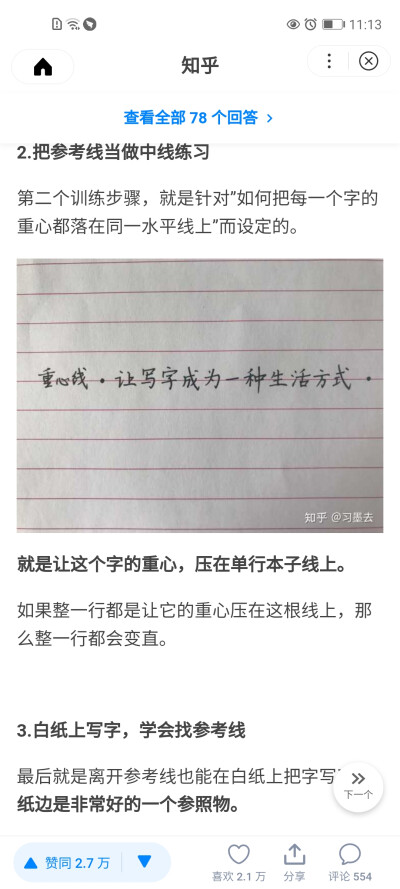 11:13
知乎
查看全部 78 个回答
2.把参考线当做中线练习
第二个训练步骤，就是针对"如何把每一个字的
重心都落在同一水平线上"而设定的。
重心线·让写字成为一种生活方式·
知乎 @习墨去
就是让这个字的重心，压在单行本子线上。
如果整一行都是让它的重心压在这根线上，那
么整一行都会变直。
3.白纸上写字，学会找参考线
最后就是离开参考线也能在白纸上把字写
下一个
纸边是非常好的一个参照物。
赞同 2.7 万
喜欢 2.1 万
分享
评论 554